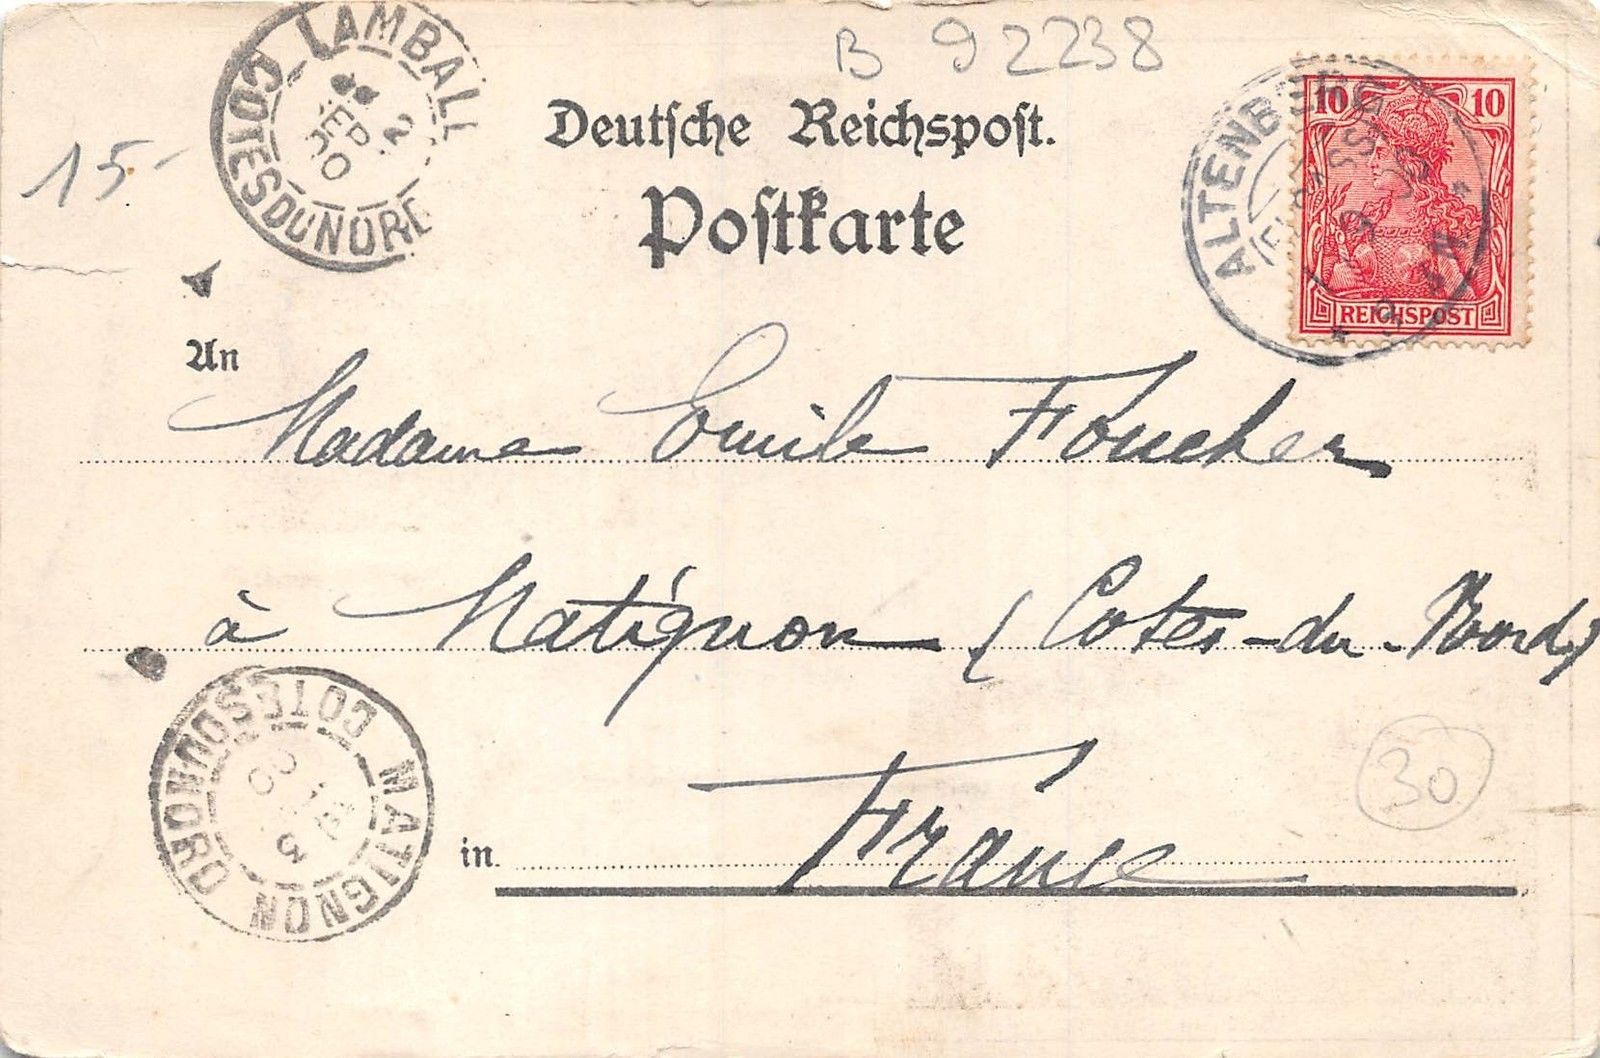 B 92238
15-
LAMBALL
COTES DU NORD
2
SEP
00
Deutsche Reichspost.
Postkarte
ALTENBERG
10 10
REICHSPOST
An
Madame Emile Foucher
à Matignon (Cotes-du-Nord)
MATIGNON
COTES DU NORD
3
30
in France